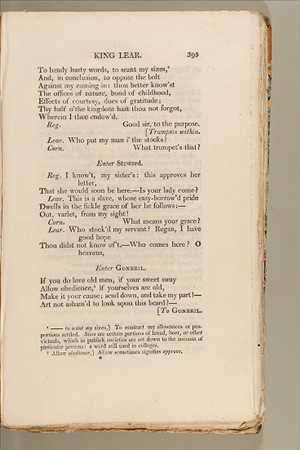 KING LEAR. 395
To bandy hasty words, to scant my sizes,⁴
And, in conclusion, to oppose the bolt
Against my coming in: thou better know'st
The offices of nature, bond of childhood,
Effects of courtesy, dues of gratitude;
Thy half o'the kingdom hast thou not forgot,
Wherein I thee endow'd.
Reg. Good sir, to the purpose.
[Trumpets within.
Lear. Who put my man i' the stocks?
Corn. What trumpet's that?
Enter Steward.
Reg. I know't, my sister's: this approves her
letter,
That she would soon be here.—Is your lady come?
Lear. This is a slave, whose easy-borrow'd pride
Dwells in the fickle grace of her he follows:—
Out, varlet, from my sight!
Corn. What means your grace?
Lear. Who stock'd my servant? Regan, I have
good hope
Thou didst not know of't.—Who comes here? O
heavens,
Enter GONERIL.
If you do love old men, if your sweet sway
Allow obedience,⁵ if yourselves are old,
Make it your cause; send down, and take my part!—
Art not asham'd to look upon this beard?—
[To GONERIL.
⁴ —— to scant my sizes,] To contract my allowances or pro-
portions settled. Sizes are certain portions of bread, beer, or other
victuals, which in publick societies are set down to the account of
particular persons: a word still used in colleges.
⁵ Allow obedience,] Allow sometimes signifies approve.